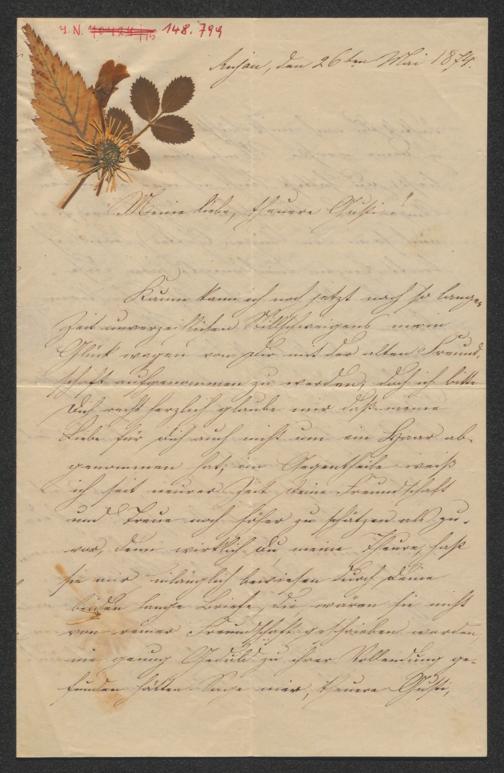 I.N. 148.799
den 26ten Mai 1874.
Meine liebe, theuere Gusti!
Kaum kann ich noch jetzt nach so langer
Zeit unverzeihlichen Stillschweigens mein
Glück wagen von Dir mit der alten Freund-
schaft aufgenommen zu werden, doch ich bitte
Dich recht herzlich glaube mir daß meine
Liebe für Dich auch nicht um ein Haar ab-
genommen hat, im Gegentheile weiß
ich seit neuerer Zeit Deine Freundschaft
und Treue noch höher zu schätzen als zu-
vor, denn wirklich Du meine Theure, hast
sie mir hinlänglich bewiesen durch Deine
beiden lange Briefe, die wären sie nicht
von reiner Freundschaft geschrieben worden,
nie genug Geduld zu ihrer Vollendung ge-
funden hätten. Sage mir, theuere Gusti,